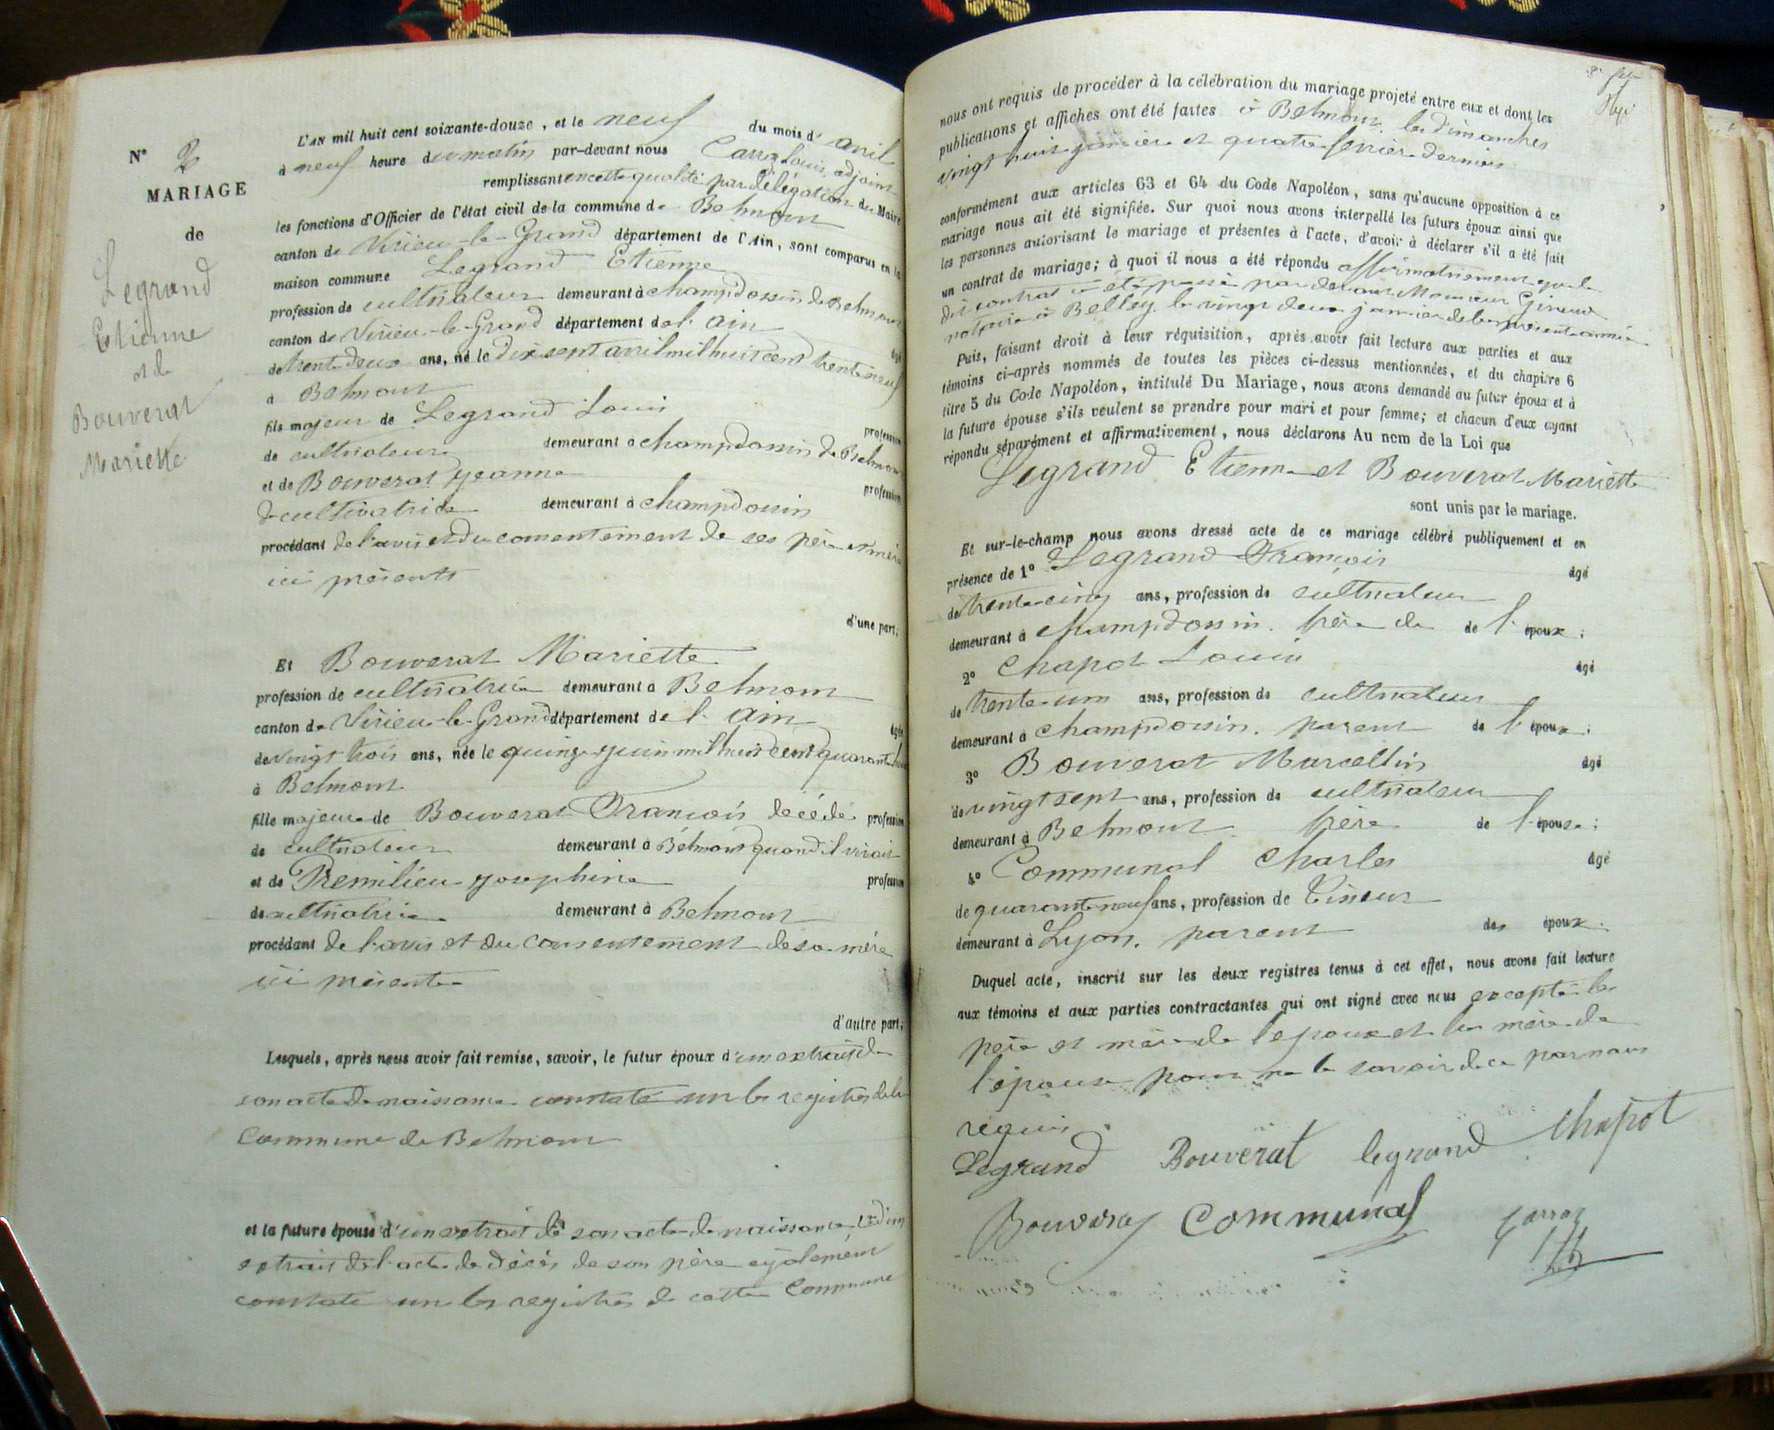 N° 2
MARIAGE
de
Legrand
Etienne
et de
Bouverat
Mariette
L'AN mil huit cent soixante-douze, et le neuf du mois d'avril
à neuf heure du matin par-devant nous Louis, adjoint
remplissant en cette qualité par délégation du Maire
les fonctions d'Officier de l'état civil de la commune de Belmont
canton de Virieu-le-Grand département de l'Ain, sont comparus en la
maison commune Legrand Etienne
profession de cultivateur demeurant à Champdossin de Belmont
canton de Virieu-le-Grand département de l'Ain âgé
de trente deux ans, né le dix sept avril mil huit cent trente neuf
à Belmont
fils majeur de Legrand Louis profession
de cultivateur demeurant à Champdossin de Belmont
et de Bouverat Jeanne profession
de cultivatrice demeurant à Champdossin
procédant de l'avis et du consentement de ses père et mère
ici présents
d'une part;
Et Bouverat Mariette
profession de cultivatrice demeurant à Belmont
canton de Virieu-le-Grand département de l'Ain âgée
de vingt trois ans, née le quinze juin mil huit cent quarante huit
à Belmont
fille majeure de Bouverat François décédé profession
de cultivateur demeurant à Belmont quand il vivait
et de Premilieu Josephine profession
de cultivatrice demeurant à Belmont
procédant de l'avis et du consentement de sa mère
ici présente
d'autre part;
Lesquels, après nous avoir fait remise, savoir, le futur époux d'un extrait de
son acte de naissance constaté sur les registres de la
Commune de Belmont
et la future épouse d'un extrait de son acte de naissance d'un
extrait de l'acte de décès de son père également
constaté sur les registres de cette Commune
nous ont requis de procéder à la célébration du mariage projeté entre eux et dont les
publications et affiches ont été faites à Belmont les dimanches
vingt huit janvier et quatre fevrier derniers
conformément aux articles 63 et 64 du Code Napoléon, sans qu'aucune opposition à ce
mariage nous ait été signifiée. Sur quoi nous avons interpellé les futurs époux ainsi que
les personnes autorisant le mariage et présentes à l'acte, d'avoir à déclarer s'il a été fait
un contrat de mariage; à quoi il nous a été répondu affirmativement que le
dit contrat a été passé par devant Monsieur
notaire à Belley le vingt deux janvier de la présente année
Puis, faisant droit à leur réquisition, après avoir fait lecture aux parties et aux
témoins ci-après nommés de toutes les pièces ci-dessus mentionnées, et du chapitre 6
titre 5 du Code Napoléon, intitulé Du Mariage, nous avons demandé au futur époux et à
la future épouse s'ils veulent se prendre pour mari et pour femme; et chacun d'eux ayant
répondu séparément et affirmativement, nous déclarons Au nom de la Loi que
Legrand Etienne et Bouverat Mariette
sont unis par le mariage.
Et sur-le-champ nous avons dressé acte de ce mariage célébré publiquement et en
présence de 1° Legrand François âgé
de trente-cinq ans, profession de cultivateur
demeurant à Champdossin. frère de de l'époux;
2° Chapot Louis âgé
de trente-un ans, profession de cultivateur
demeurant à Champdossin. parent de l'époux;
3° Bouverat Marcellin âgé
de vingt sept ans, profession de cultivateur
demeurant à Belmont. frère de l'épouse;
4° Communal Charles âgé
de quarante neuf ans, profession de Tisseur
demeurant à Lyon. parent des époux.
Duquel acte, inscrit sur les deux registres tenus à cet effet, nous avons fait lecture
aux témoins et aux parties contractantes qui ont signé avec nous excepté les
père et mère de l'époux et la mère de
l'épouse pour ne le savoir de ce par nous
requis.
Legrand Bouverat legrand Chapot
Bouverat Communal